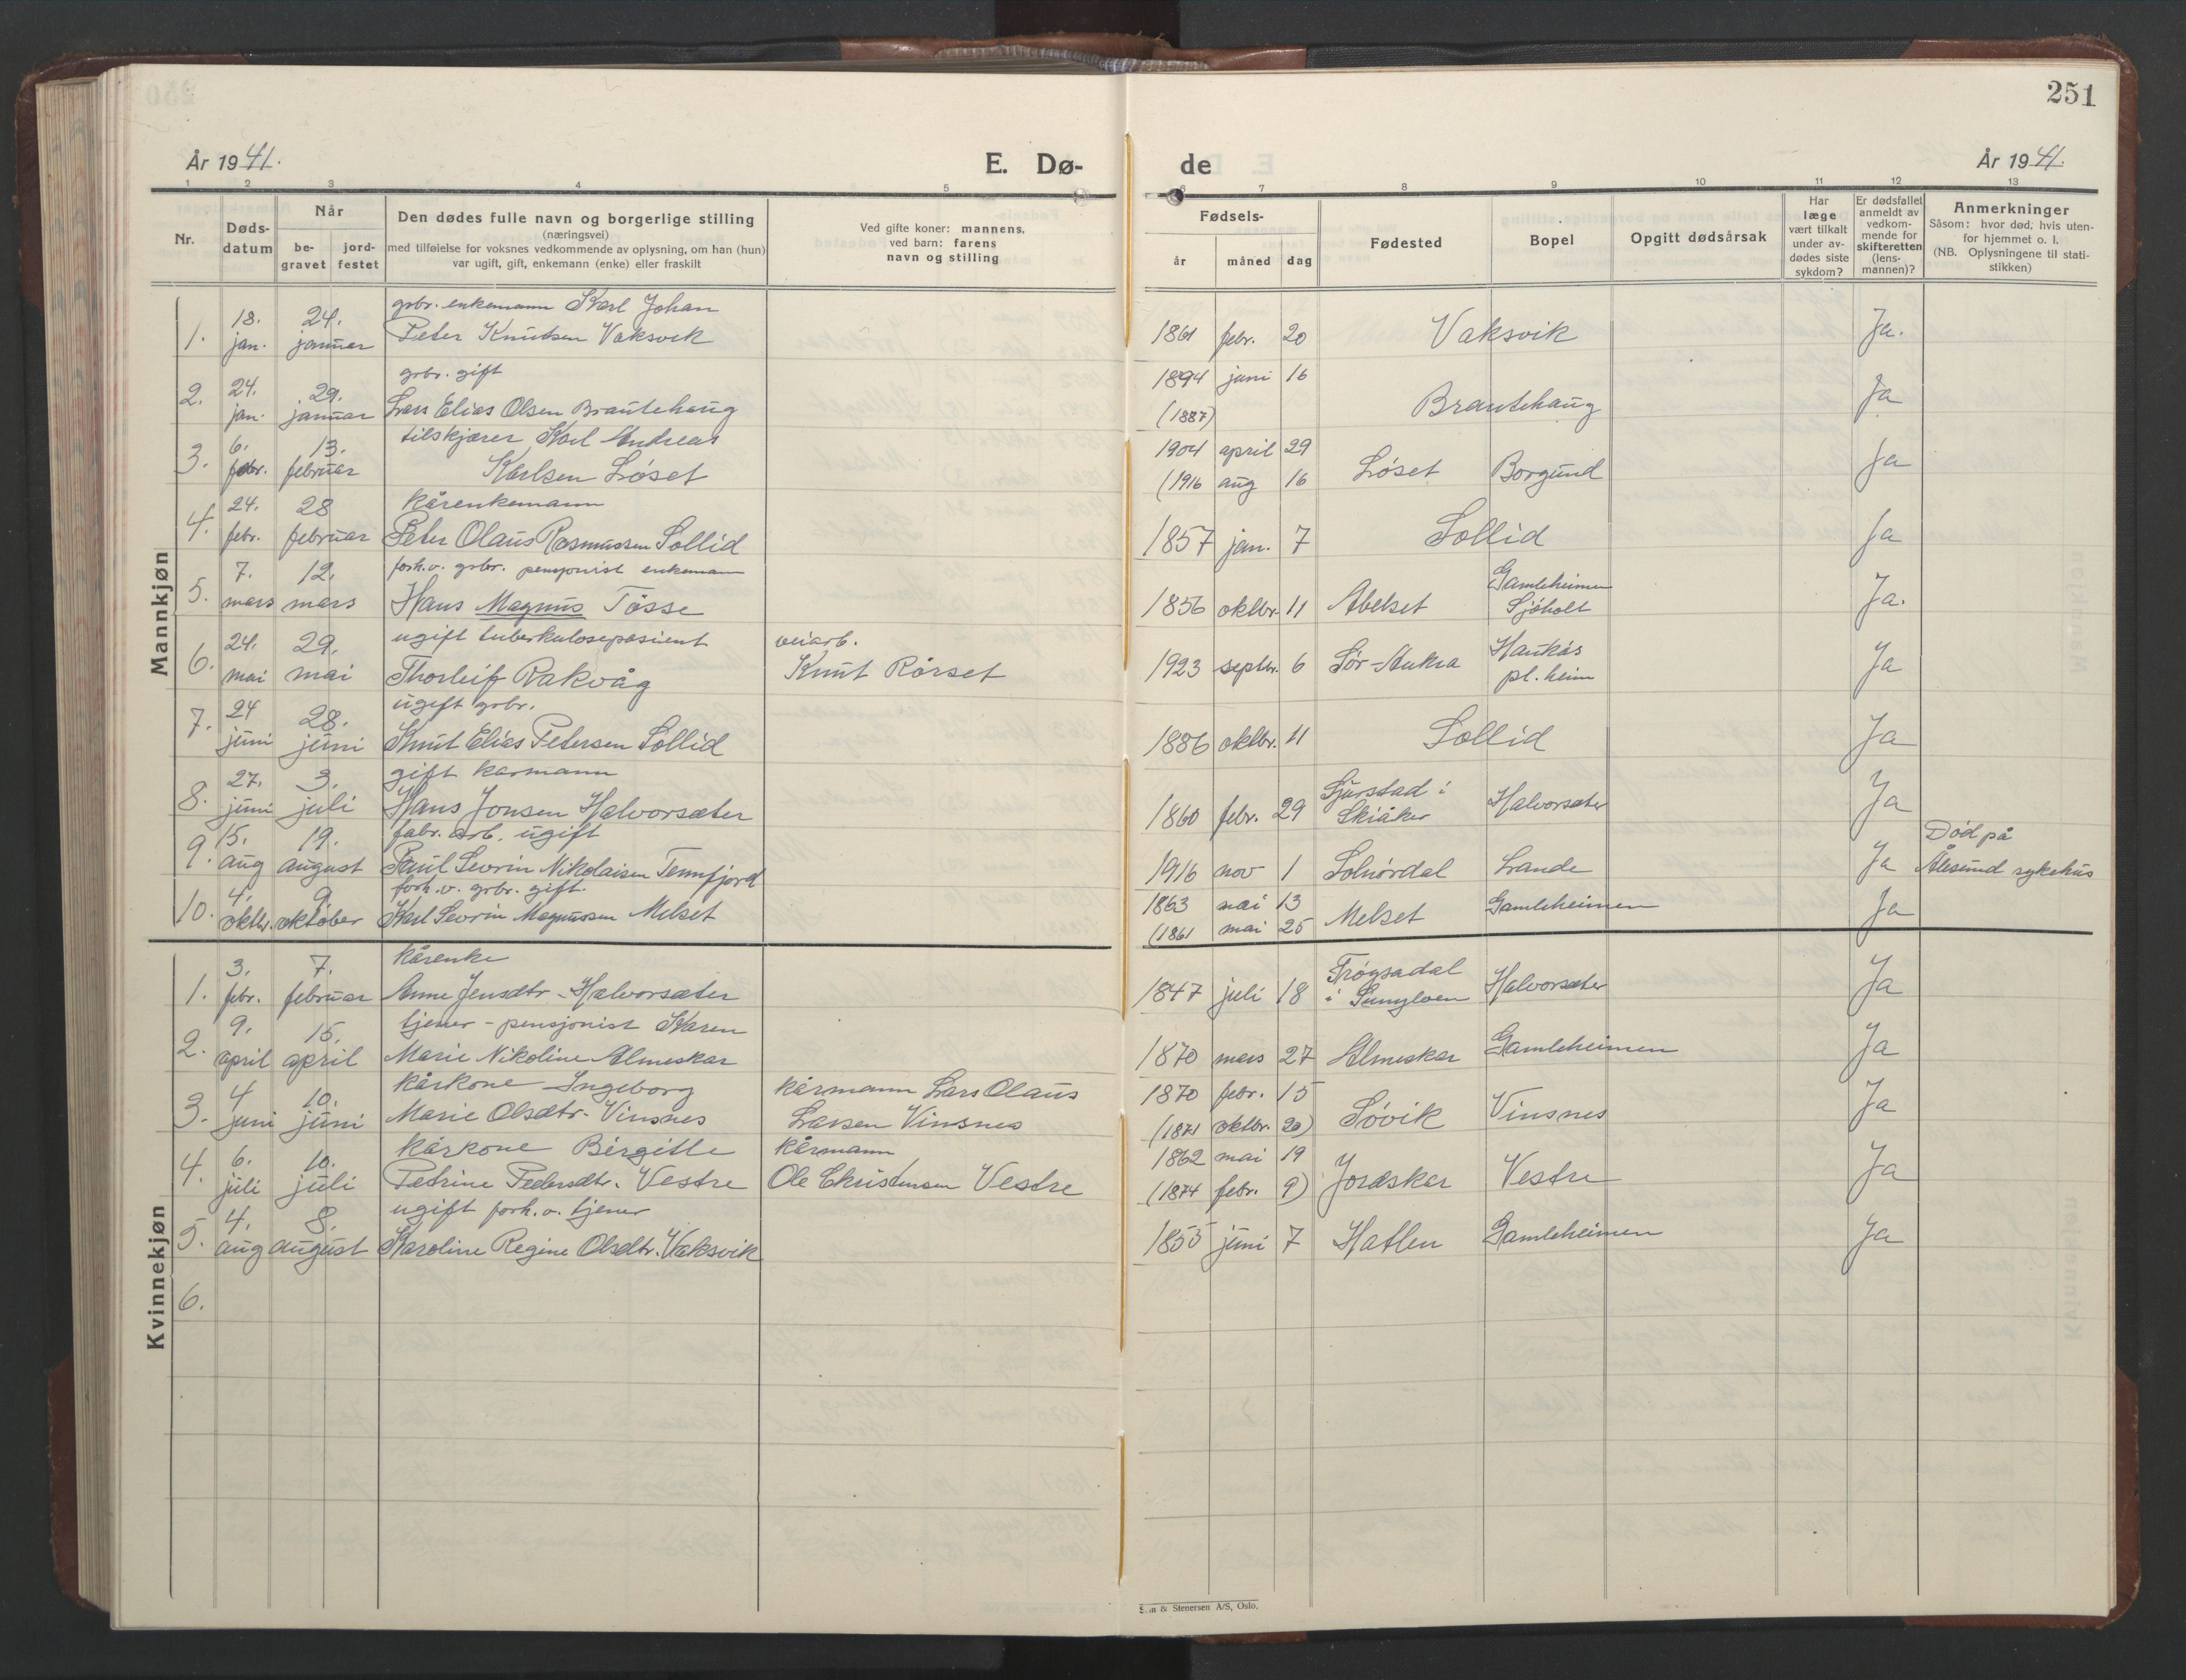 251
År 1941.
E. Dø-
de
År 1941.
1 2 3 4 5 6 7 8 9 10 11 12 13
Nr.
Døds-
datum
Når
be-
gravet
jord-
festet
Den dødes fulle navn og borgerlige stilling
(næringsvei)
med tilføielse for voksnes vedkommende av oplysning, om han (hun)
var ugift, gift, enkemann (enke) eller fraskilt
Ved gifte koner: mannens,
ved barn: farens
navn og stilling
Fødsels-
år måned dag
Fødested
Bopel
Opgitt dødsårsak
Har
læge
vært tilkalt
under av-
dødes siste
sykdom?
Er dødsfallet
anmeldt av
vedkom-
mende for
skifteretten
(lens-
mannen)?
Anmerkninger
Såsom: hvor død, hvis uten-
for hjemmet o. l.
(NB. Oplysningene til stati-
stikken)
Mannkjøn
18. 24. grbr. enkemann Karl Johan
1. jan. januar Peter Knutsen Vaksvik 1861 febr. 20 Vaksvik Ja.
24. 29. grbr. gift 1894 juni 16
2. jan. januar Lars Elias Olsen Brautehaug (1887) Brautehaug Ja
6. 13. tilskjærer Karl Andreas 1904 april 29
3. febr. februar Karlsen Løset (1916 aug 16 Løset Borgund Ja
24. 28 kårenkemann
4. febr. februar Peter Olaus Rasmussen Sollid 1857 jan. 7 Sollid Ja
7. 12. forh.v. grbr. pensjonist enkemann Gamleheimen
5. mars mars Hans Magnus Tøsse 1856 oktbr. 11 Abelset Sjøholt Ja.
24. 29. ugift tuberkulosepasient veiarb. Haukås
6. mai mai Thorleif Rakvåg Knut Rørset 1923 septbr. 6 Sør-Aukra pl. heim Ja
24 28. ugift grbr.
7. juni juni Knut Elias Petersen Sollid 1886 oktbr. 11 Sollid Ja
27. 3. gift karmann Sjurstad i
8. juni juli Hans Jonsen Halvorsæter 1860 febr. 29 Skiåker Halvorsæter Ja
15. 19. fabr. arb. ugift Død på
9. aug august Paul Sevrin Nikolaisen Tennfjord 1916 nov 1 Solnørdal Lande Ja Ålesund sykehus
4. 9. forh.v. grbr. gift. 1863 mai 13
10. oktbr. oktober Karl Sevrin Magnussen Melset (1861 mai 25 Melset Gamleheimen Ja
Kvinnekjøn
3. 7. kårenke Frøysadal
1. febr. februar Anne Jensdtr. Halvorsæter 1847 juli 18 i Sunylven Halvorsæter Ja
9. 15. tjener - pensjonist Karen
2. april april Marie Nikoline Almeskar 1870 mars 27 Almeskar Gamleheimen Ja
4 10. kårkone Ingeborg kårmann Lars Olaus 1870 febr. 15
3. juni juni Marie Olsdtr. Vinsnes Larsen Vinsnes (1871 oktbr. 20) Søvik Vinsnes Ja
6. 10. kårkone Birgitte kårmann 1862 mai 19
4. juli juli Petrine Pedersdtr. Vestre Ole Christensen Vestre (1874 febr. 9) Jordskar Vestre Ja
4. 8. ugift forh. v. tjener
5. aug august Karoline Regine Olsdtr. Vaksvik 1855 juni 7 Hatlen Gamleheimen Ja
6.
Sem & Stenersen A/S, Oslo.